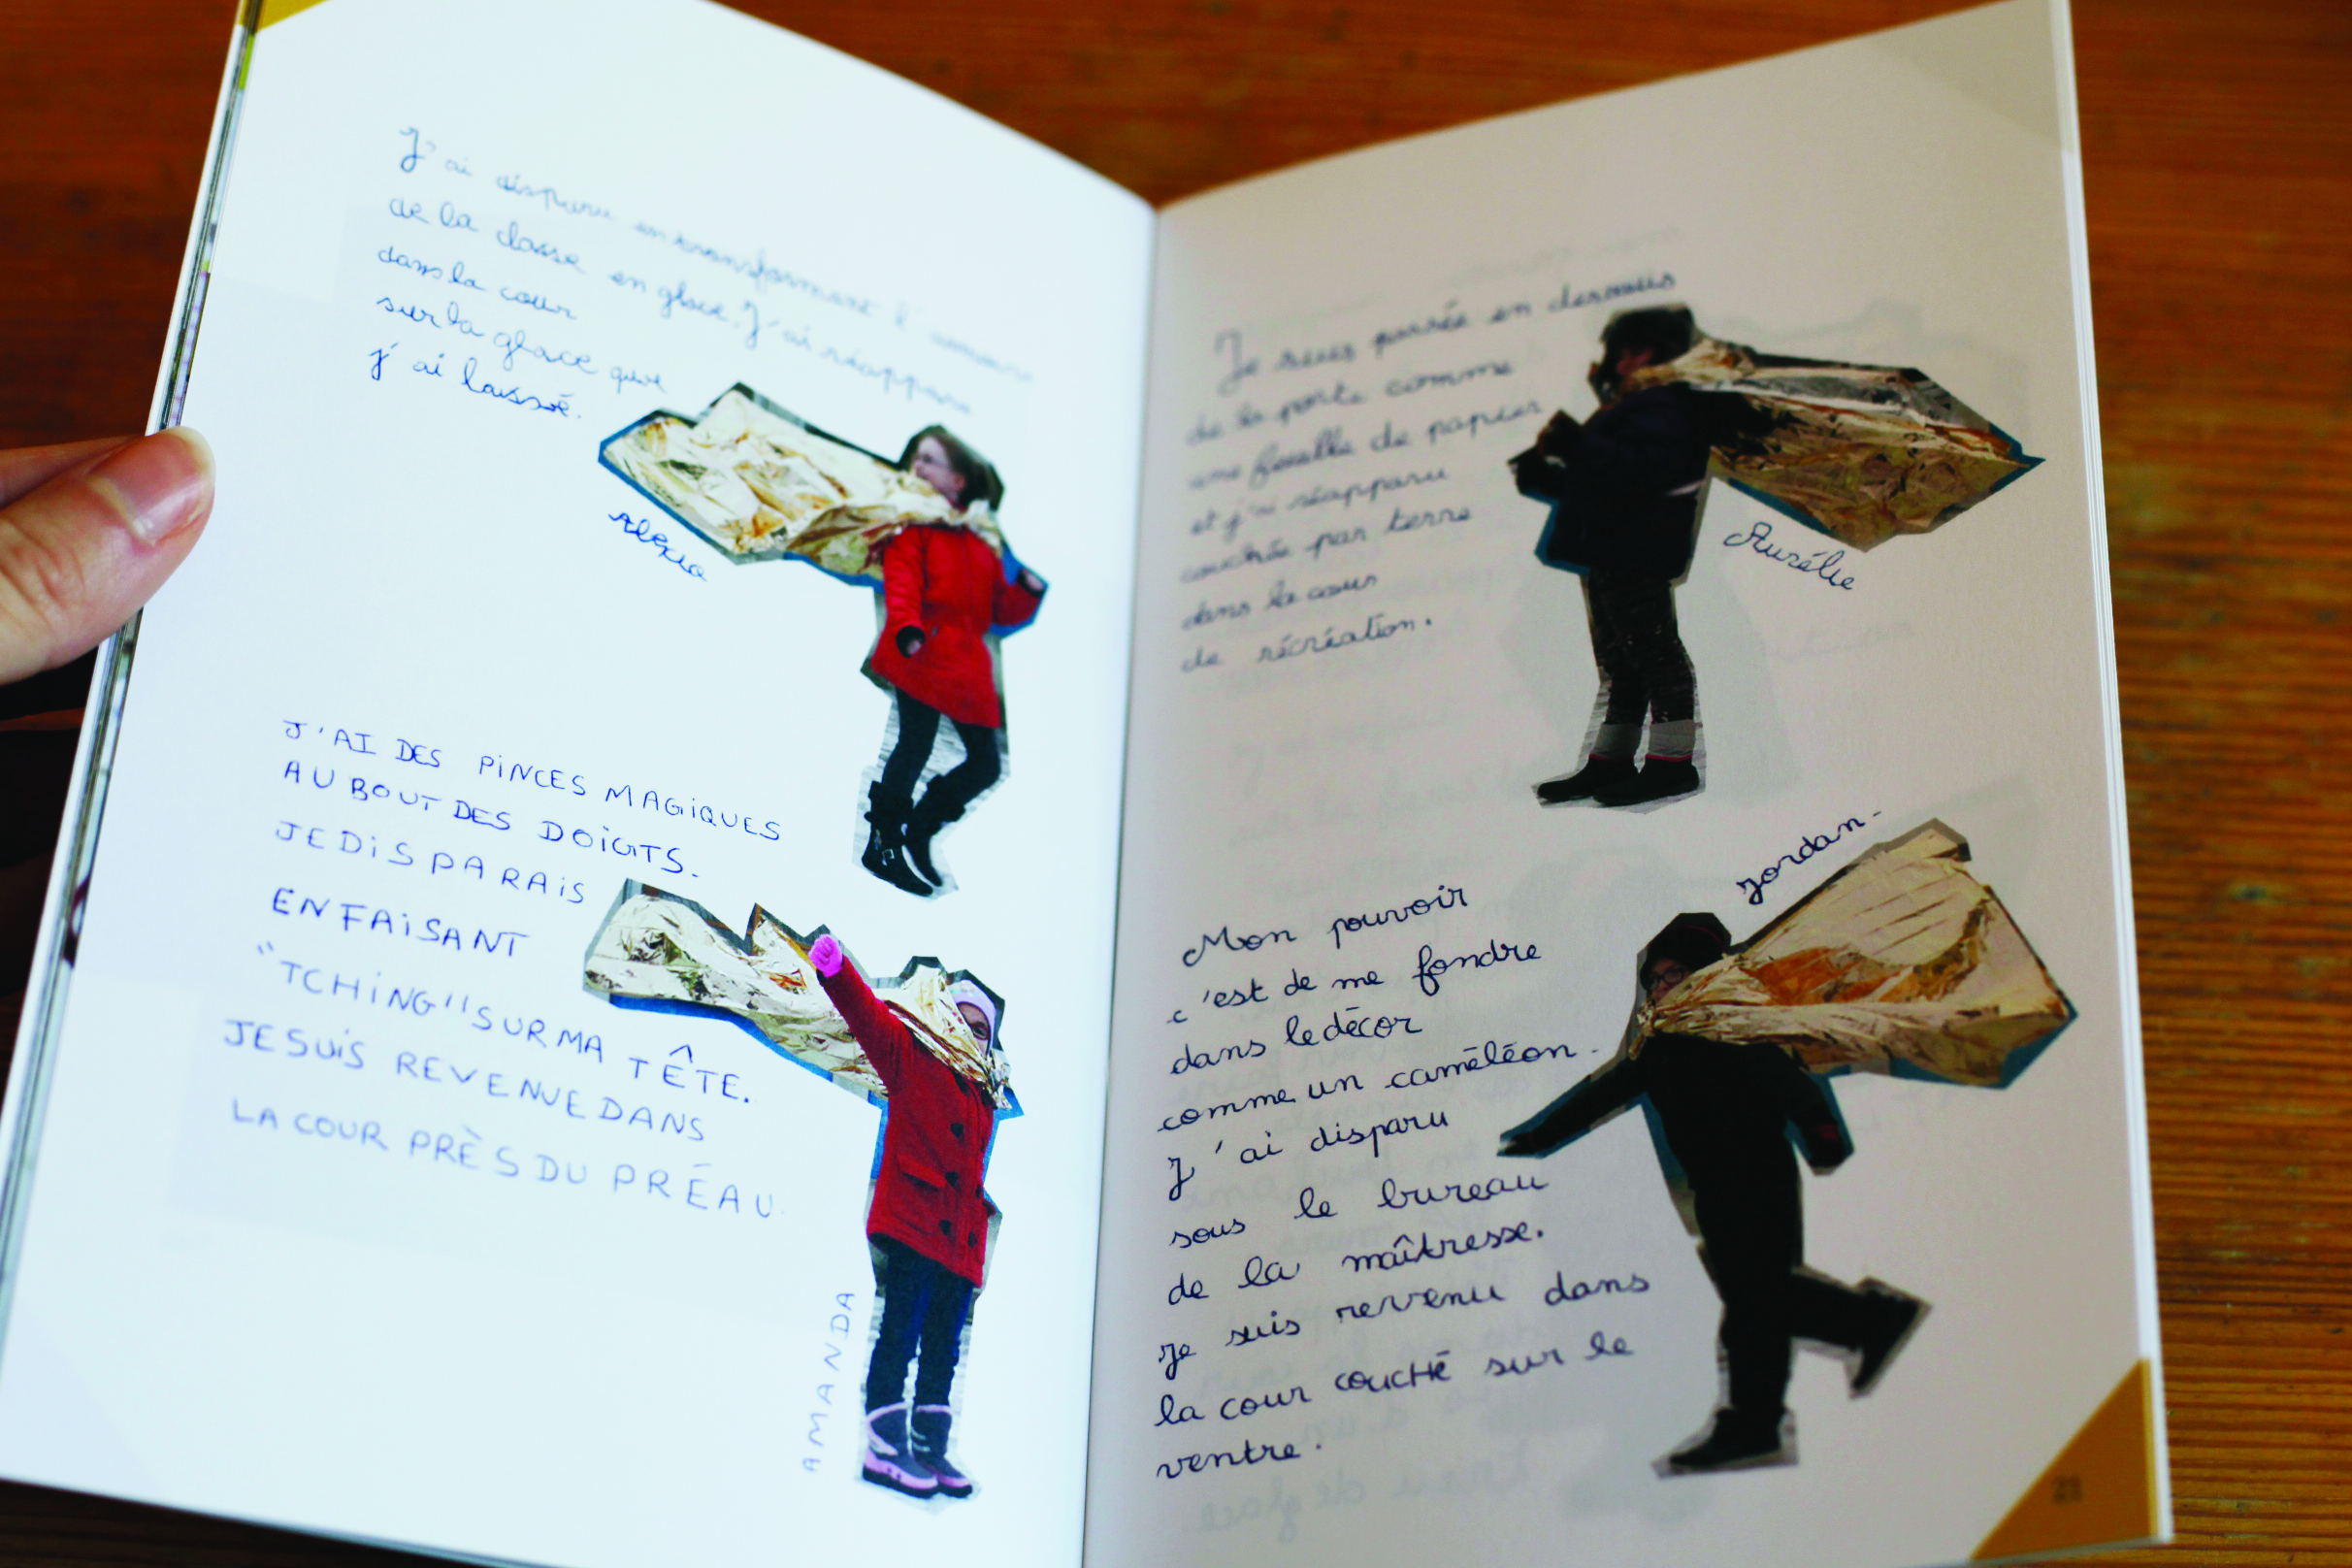 J'ai disparu en transformant l'armoire
de la classe en glace. J'ai réapparu
dans la cour
sur la glace que
j'ai laissé.
Alexia
J'AI DES PINCES MAGIQUES
AU BOUT DES DOIGTS.
JE DISPARAIS
EN FAISANT
"TCHING" SUR MA TÊTE.
JE SUIS REVENUE DANS
LA COUR PRÈS DU PRÉAU.
AMANDA
Je suis passée en dessous
de la porte comme
une feuille de papier
et j'ai réapparu
couchée par terre
dans la cour
de récréation.
Aurélie
Jordan.
Mon pouvoir
c'est de me fondre
dans le décor
comme un caméléon.
J'ai disparu
sous le bureau
de la maîtresse.
Je suis revenu dans
la cour couché sur le
ventre.